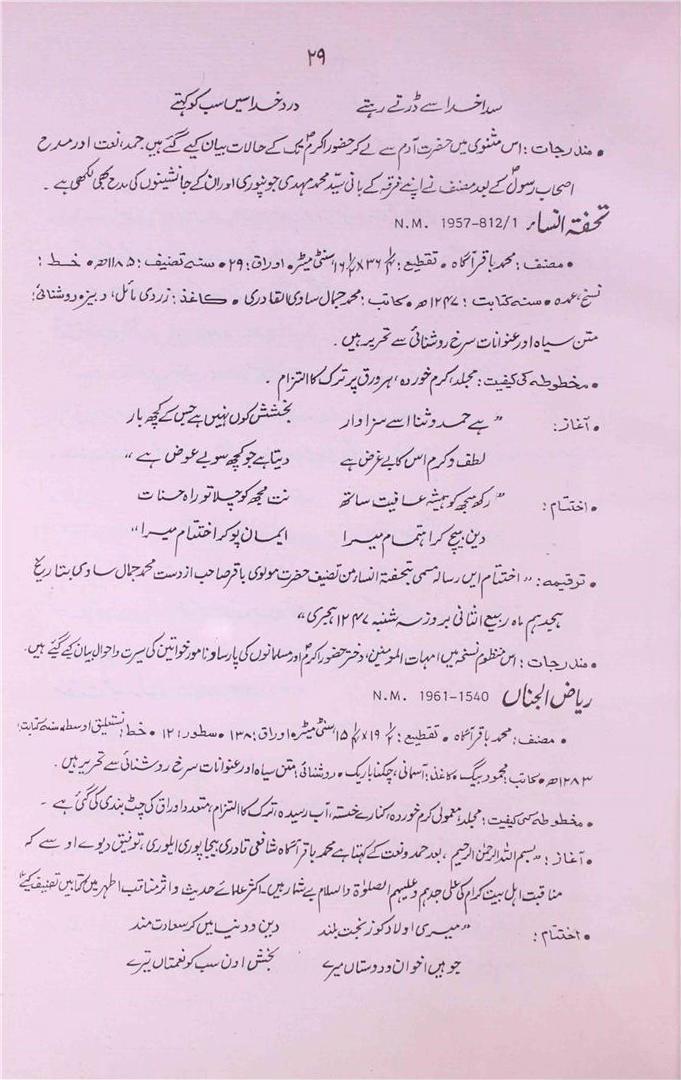 ۲۹
سدا خدا سے ڈرتے رہتے درد خدا سیں سب کو کہتے
• مندرجات: اس مثنوی میں حضرت آدم سے لے کر حضور اکرمؐ تک کے حالات بیان کیے گئے ہیں۔ حمد، نعت اور مدح
اصحاب رسولؐ کے بعد مصنف نے اپنے فرقہ کے بانی سیّد محمد مہدی جونپوری اور ان کے جانشینوں کی مدح بھی لکھی ہے۔
تحفۃ النساء N.M. 1957-812/1
• مصنف: محمد باقر آگاہ • تقطیع: سنٹی میٹر • اوراق: ۲۹ • سنہ تصنیف: ۱۱۸۵ھ • خط:
نسخ، عمدہ • سنہ کتابت: ۱۲۴۷ھ • کاتب: محمد جمال ساوی القادری • کاغذ: زردی مائل، دبیز • روشنائی:
متن سیاہ اور عنوانات سرخ روشنائی سے تحریر ہیں۔
• مخطوطہ کی کیفیت: مجلد، کرم خوردہ، ہر ورق پر ترک کا التزام۔
• آغاز: "ہے حمد و ثنا اسے سزاوار بخشش کوں نہیں ہے جس کے کچھ بار
لطف و کرم اس کا بے غرض ہے دیتا ہے جو کچھ سو بے عوض ہے"
• اختتام: "رکھ مجھ کو ہمیشہ عافیت ساتھ نت مجھ کو چلا تو راہ حسنات
دین بیچ کر اہتمام میرا ایمان پو کر اختتام میرا"
• ترقیمہ: "اختتام ایں رسالہ مسمی بتحفۃ النساء من تصنیف حضرت مولوی باقر صاحب از دست محمد جمال ساوی بتاریخ
ہیجدہم ماہ ربیع الثانی بروز سہ شنبہ ۱۲۴۷ ہجری"
• مندرجات: اس منظوم نسخہ میں امہات المومنین، دختر حضور اکرمؐ اور مسلمانوں کی پارسا و نامور خواتین کی سیرت و احوال بیان کیے گئے ہیں۔
ریاض الجناں N.M. 1961-1540
• مصنف: محمد باقر آگاہ • تقطیع: سنٹی میٹر • اوراق: ۱۳۸ • سطور: ۱۲ • خط: نستعلیق اوسط • سنہ کتابت:
۱۲۸۳ھ • کاتب: محمود بیگ • کاغذ: آسمانی، چکنا باریک • روشنائی: متن سیاہ اور عنوانات سرخ روشنائی سے تحریر ہیں۔
• مخطوطہ کی کیفیت: مجلد، معمولی کرم خوردہ، کنارے خستہ، آب رسیدہ، ترک کا التزام، متعدد اوراق کی چٹ بندی کی گئی ہے۔
• آغاز: "بسم اللہ الرحمٰن الرحیم، بعد حمد و نعت کے کہتا ہے محمد باقر آگاہ شافعی قادری بیجاپوری ایلوری، توفیق دیوے او سے کہ
مناقبت اہل بیت کرام کی علی جدہم و علیہم الصلوٰۃ والسلام بے شمار ہیں۔ اکثر علمائے حدیث و اثر مناقب اطہر میں کتابیں تصنیف کیے"
• اختتام: "میری اولاد کو ز بخت بلند دین و دنیا میں کر سعادت مند
جو ہیں اخوان و دوستاں میرے بخش اون سب کو نعمتاں تیرے